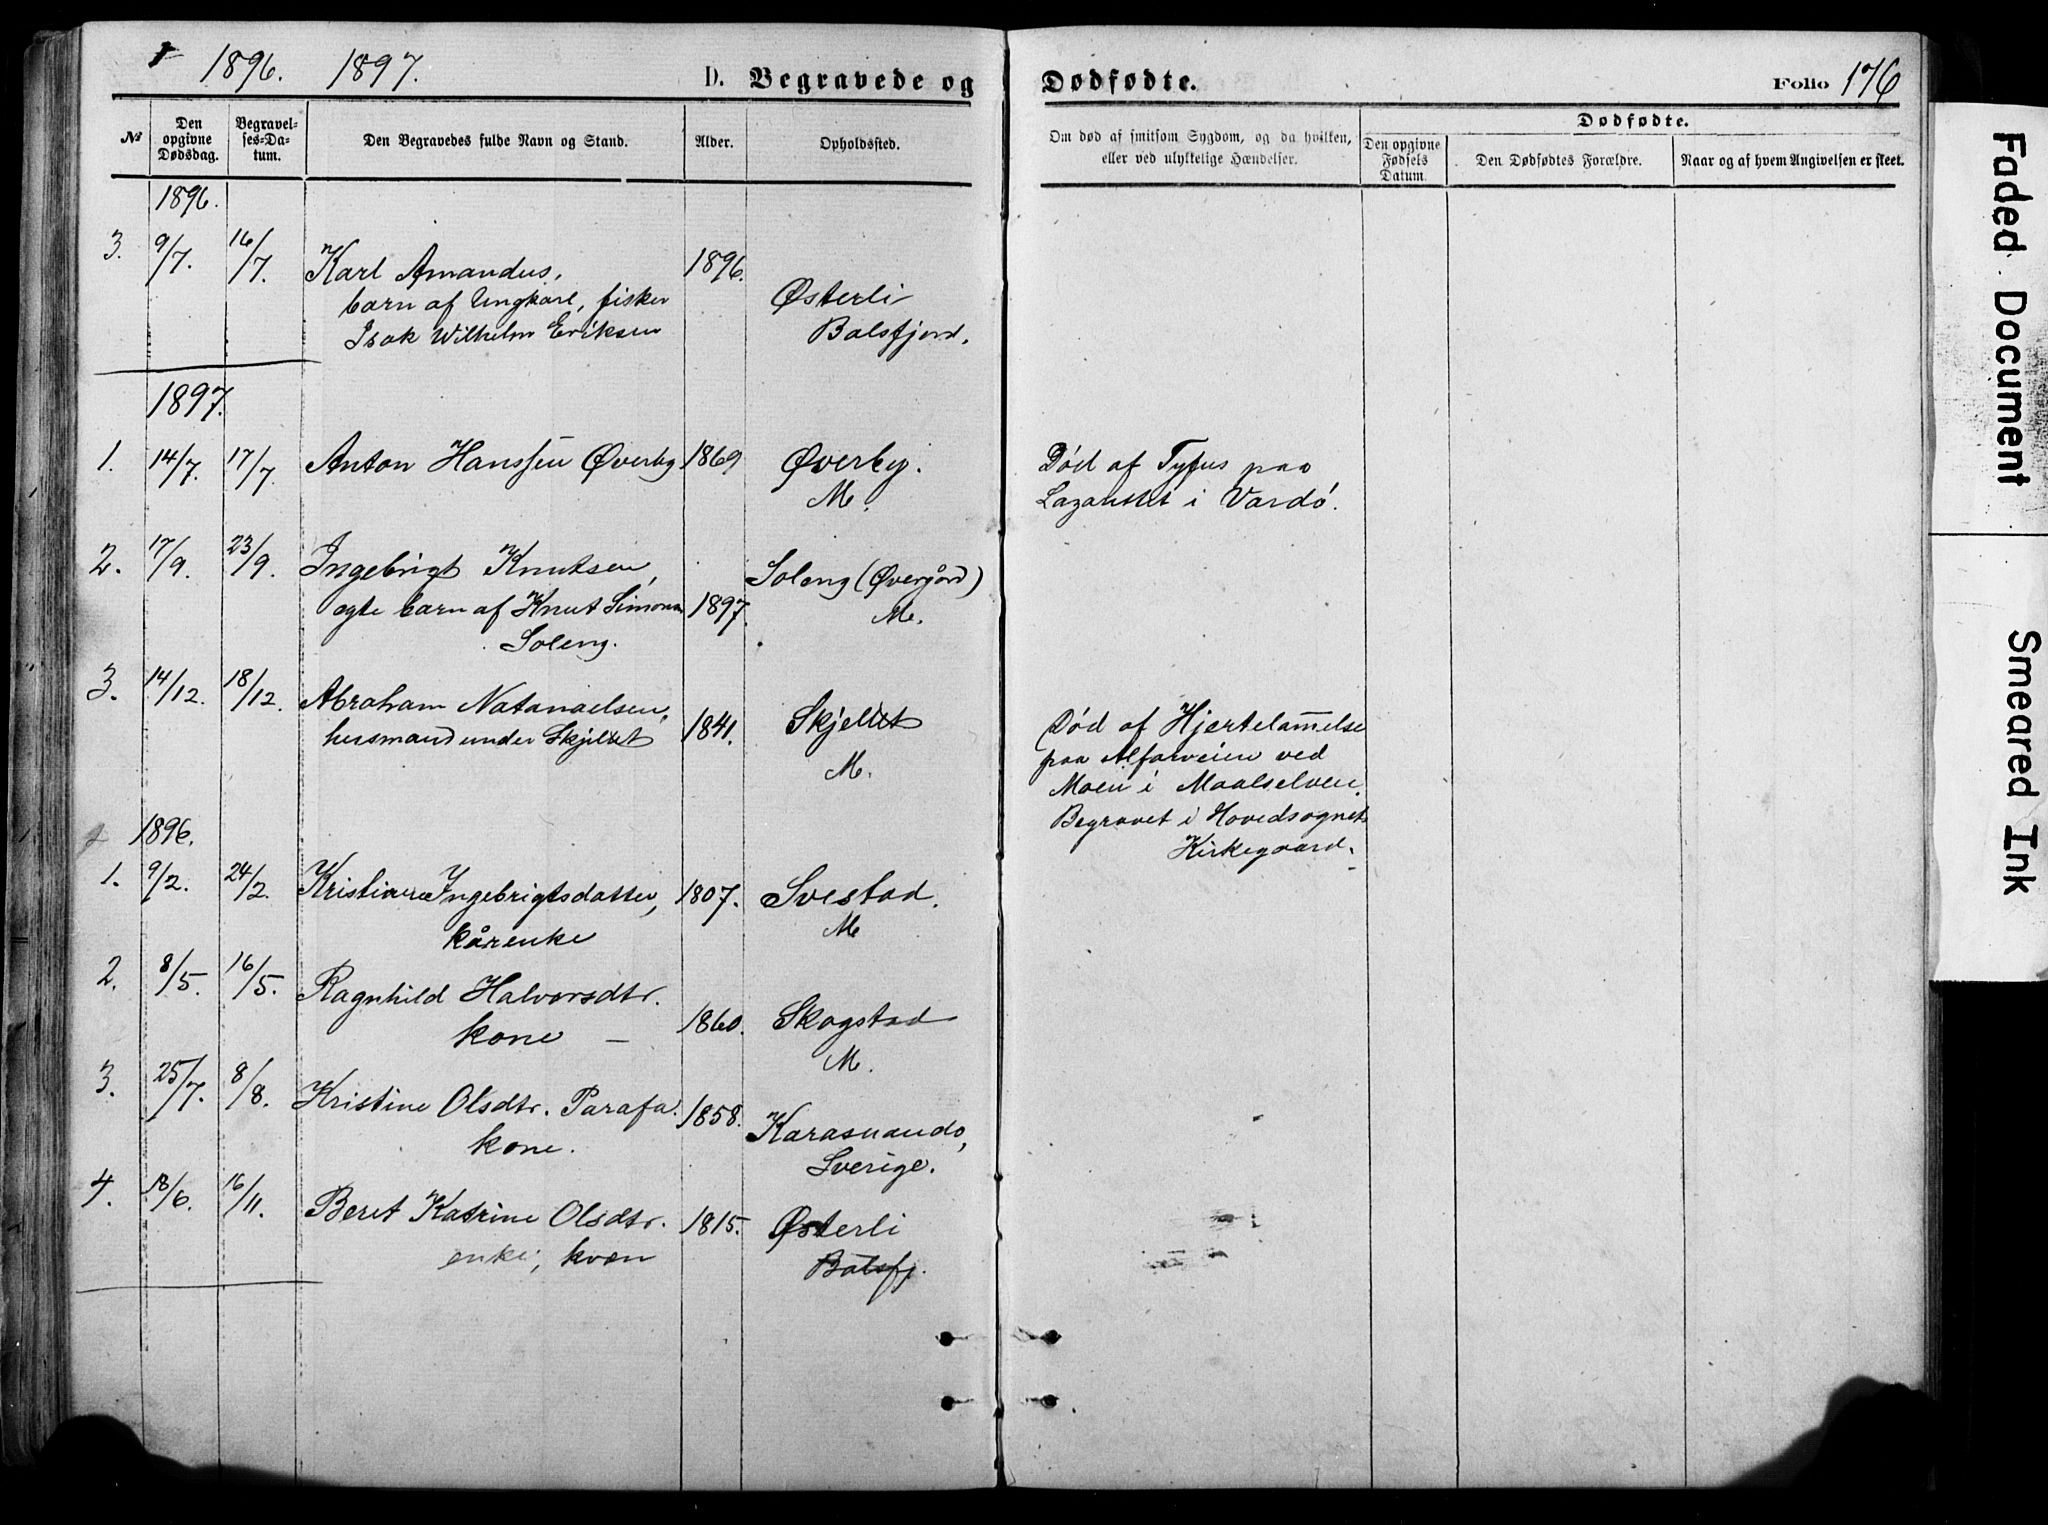 1896. 1897. D. Begravede og Dødfødte. Folio 176
№ Den opgivne Dødsdag. Begravel-ses-Da-tum. Den Begravedes fulde Navn og Stand. Alder. Opholdssted. Om død af smitsom Sygdom, og da hvilken, eller ved ulykkelige Hændelser. Dødfødte. Den opgivne Fødsels Datum. Den Dødfødtes Forældre. Naar og af hvem Angivelsen er skeet.
1896.
3. 9/7. 16/7. Karl Amandus, 1896.
barn af Ungkarl, fisker Østerli
Isak Wilhelm Eriksen Balsfjord.
1897.
1. 14/7. 17/7. Anton Hanssen Øverby 1869 Øverby. Død af Tyfus paa
M. Lazarettet i Vardø.
2. 17/9. 23/9. Ingebrigt Knutsen, Soleng (Øvergård)
egte barn af Knut Simonsen 1897. M.
Soleng.
3. 14/12. 18/12. Abraham Natanaelsen, Skjellet Død af Hjertelammelse
husmand under Skjellet 1841. M. paa Alfarveien ved
Moen i Maalselven.
Begravet i Hovedsognets
Kirkegaard.
1896.
1. 9/2. 24/2. Kristiane Ingebrigtsdatter, 1807. Svestad.
kårenke M
2. 8/5. 16/5. Ragnhild Halvorsdtr.
kone — 1860. Skogstad
M.
3. 25/7. 8/8. Kristine Olsdtr. Parafa. 1858. Karasuando,
kone. Sverige.
4. 18/6. 16/11. Beret Katrine Olsdtr. 1815. Østerli
enke, kvæn Balsfj.
Faded Document
Smeared Ink